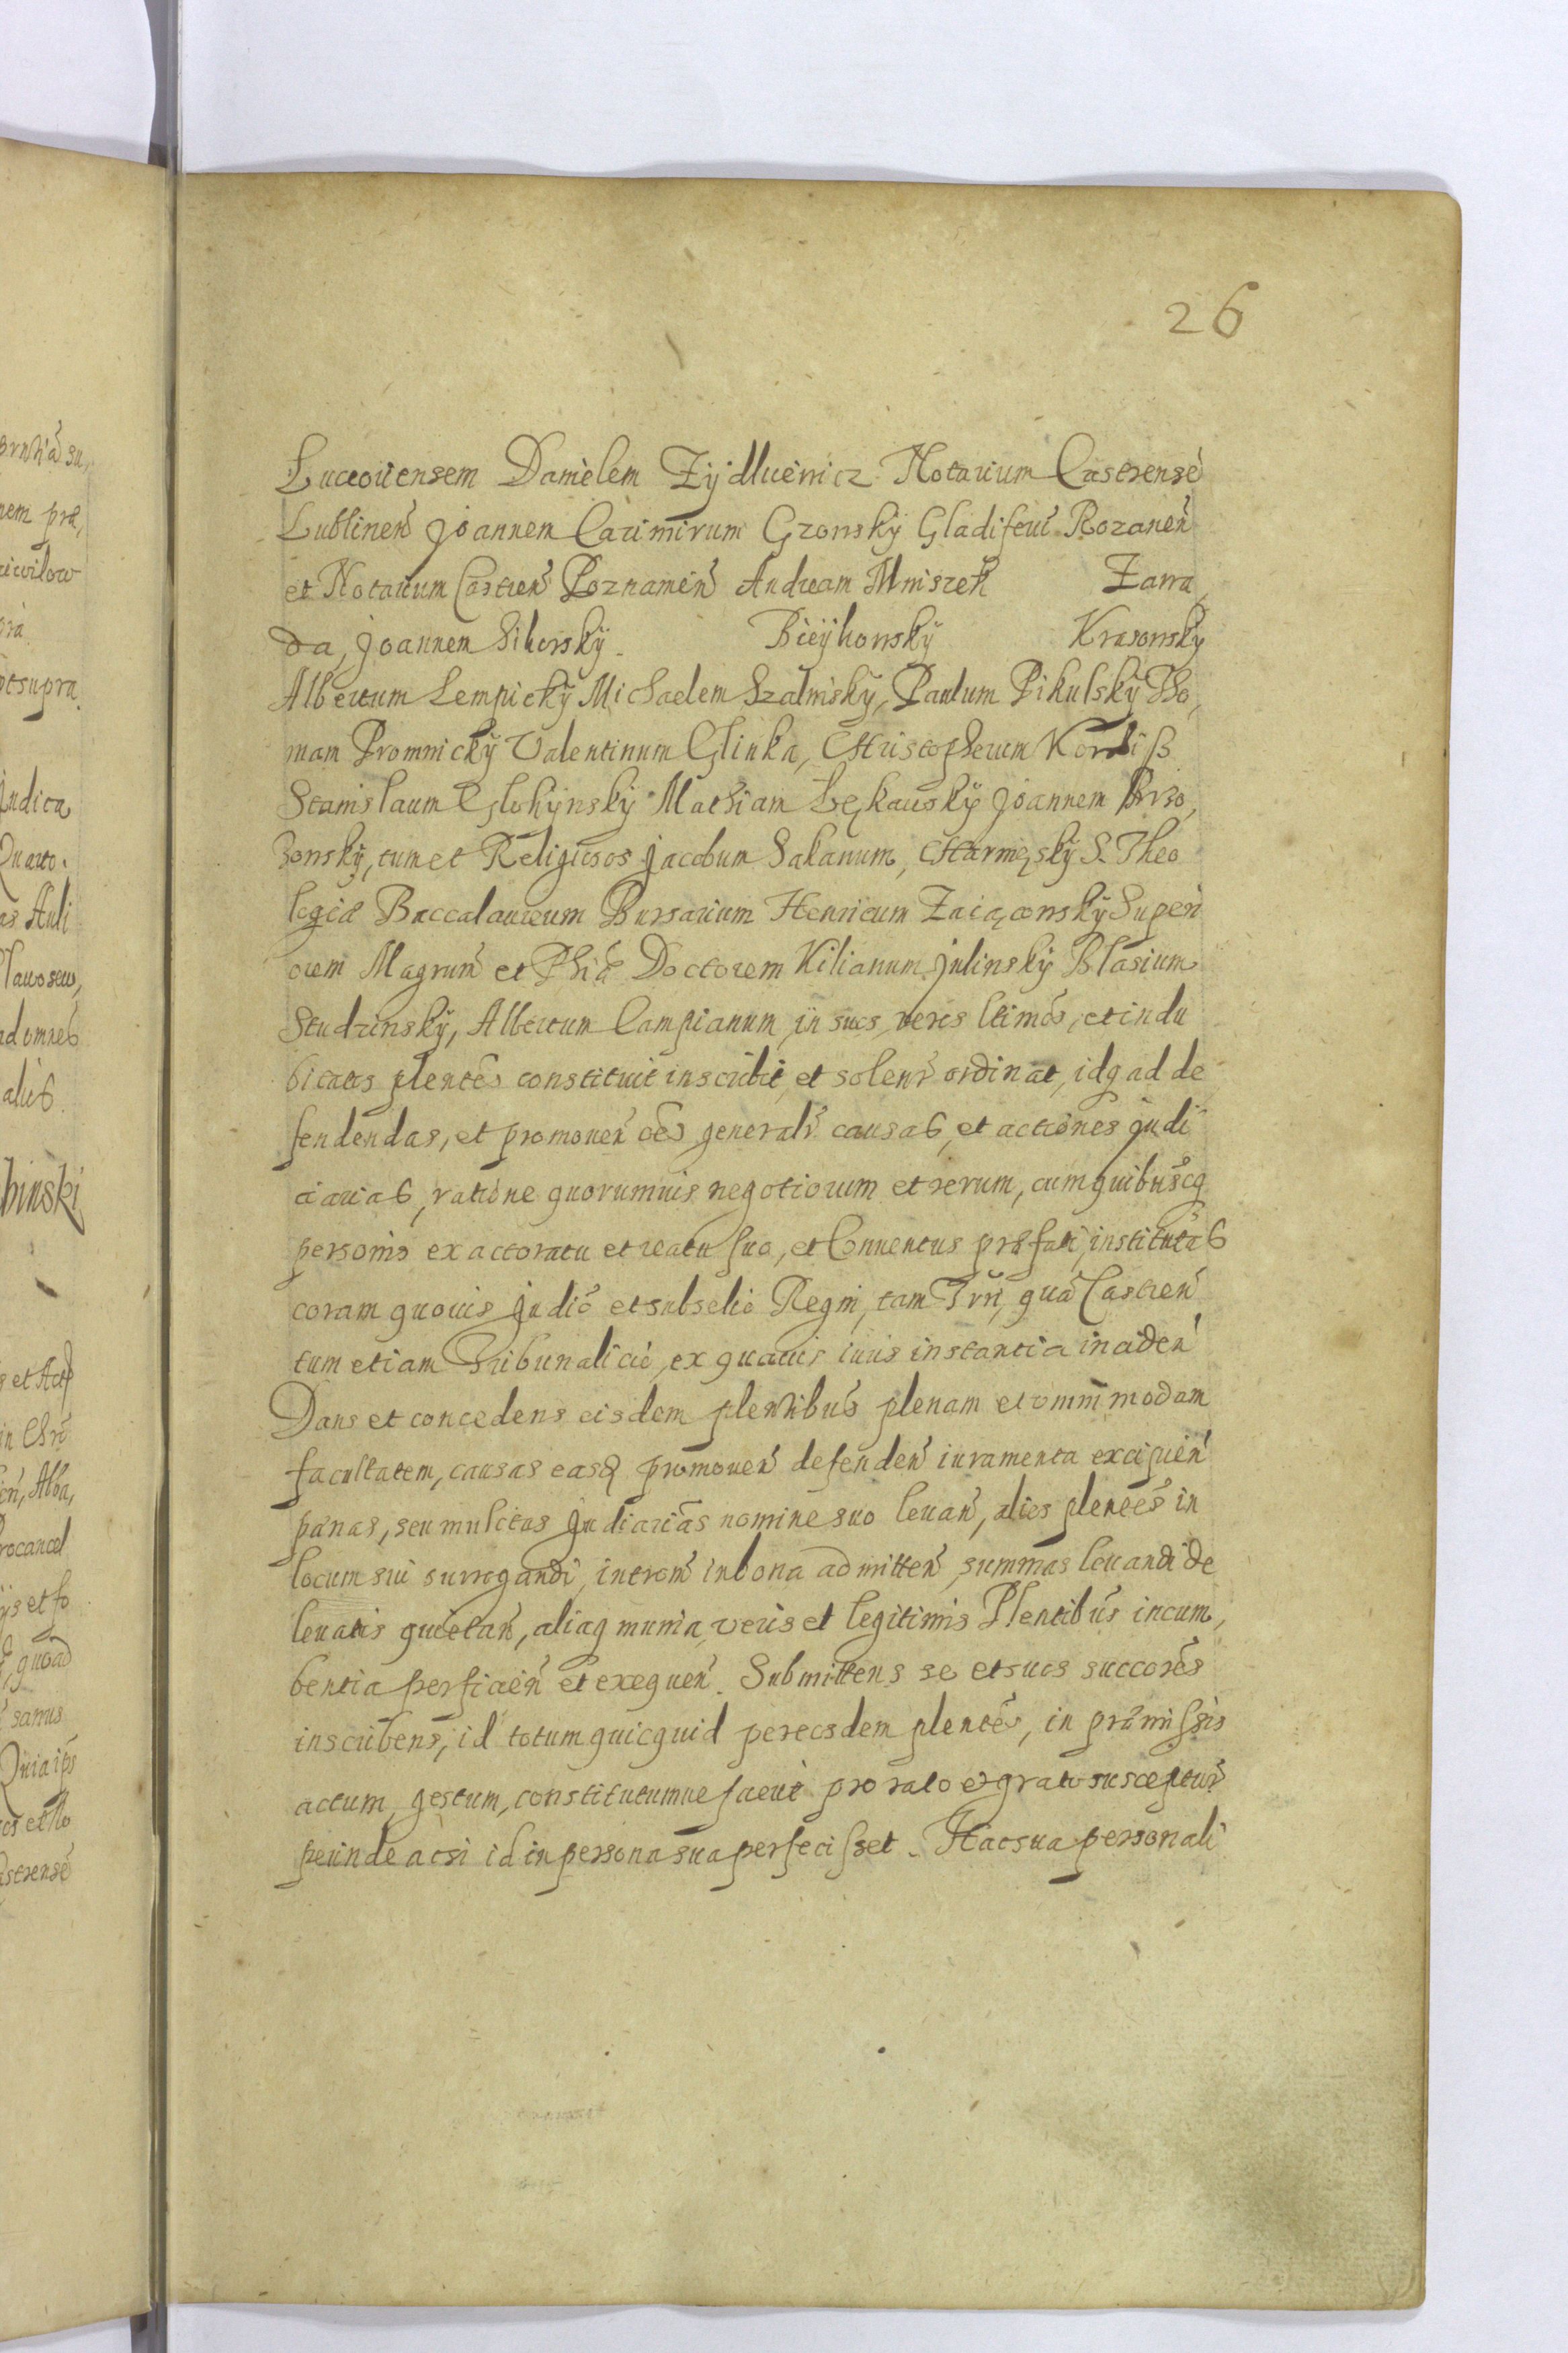 26
Luceoviensem Danielem Zÿdluewicz Notarium Castrensẽ
Lublineñ Joannem Cazimirum Gzowskÿ Gladiferũ Rozaneñ
et Notarium Castreñ Poznanieñ Andream Mniszek Zawa,
da, Joannem Sikorskÿ. Bieÿkowskÿ Krasowskÿ
Albertum Lempickÿ Michaelem Szalewskÿ, Paulum Pikulskÿ Tho,
mam Promnickÿ Valentinum Glinka, Christopherum Kordiß
Stanislaum Glokÿnskÿ Mathiam Łęzkawskÿ Joannem Brzo,
zowskÿ, tum et Religiosos Jacobum Sakanum, S. Theo
logiæ Baccalaureum Bursarium Henricum Zaiączowskÿ Superi
orem Magrum̃ et Phiæ Doctorem Kilianum Julinskÿ Blasium
Studzinskÿ, Albertum Campianum, in suos, veros ltimos, et indu
bitatos plentes constituit inscribit, et solenr̃ ordinat, idq ad de
fendendas, et promoueñ oẽs generalr̃ causas, et actiones judi
ciarias, ratione quorumuis negotiorum et rerum, cum quibuscq
personis ex actoratu et reatu suo, et Conuentus præfati, institutas
coram quouis judiõ et subselio Regni, tam Trr̃i, quã Castreñ
tum etiam Tribunalicio, ex quauis iuris instantia incideñ
Dans et concedens eisdem plentibus plenam et omnimodam
facultatem, causas easq promoueñ defendeñ iuramenta excipieñ
pænas, seu mulctas Judiarias nomine suo leuañ, alios plentes in
locum sui surrogandi, introm̃ in bona admitteñ, summas leuandi de
leuatis quietañ, aliaq munia, veris et legitimis Plentibus incum,
bentia perficieñ et exequeñ. Submittens se et suos succores
inscribens, id totum quicquid per eosdem plentes, in præmissis
actum, gestum, constitutumue fuerit pro rato et grato suscepturũ
perinde acsi id in persona sua perfecisset. Hac sua personali